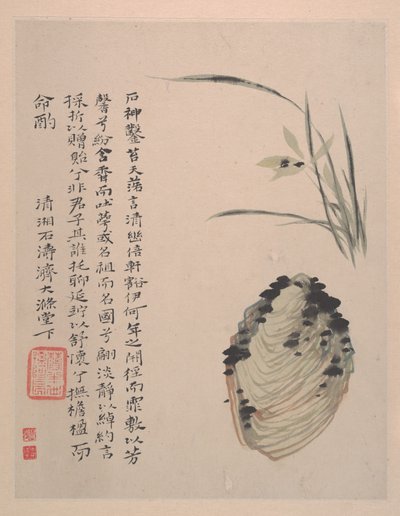 石神鑿苔天蕩言清繼倍軒豁伊何年之開徑而霏敷以芳
馨兮紛含霽而吐縈或名祖而名國兮翩淡靜以綽約言
採折以贈貽兮非君子其誰托聊延竚以舒懷兮撫檐楹而
命酌
清湘石濤濟大滌堂下